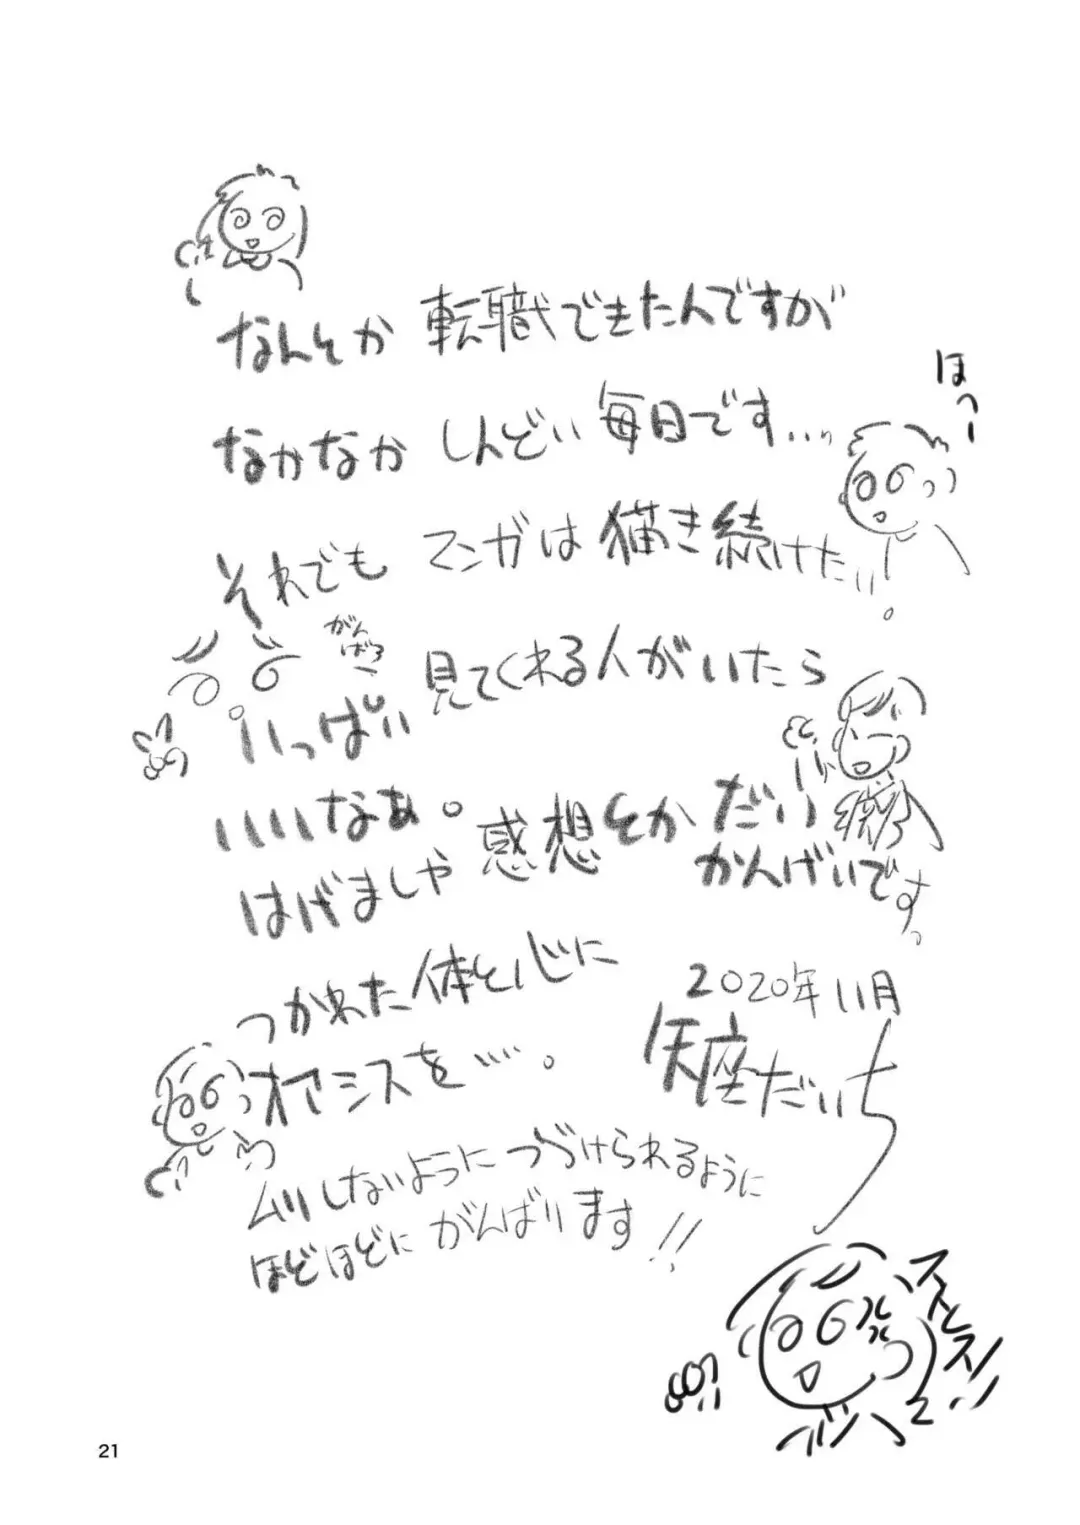 なんとか 転職できたんですが
なかなか しんどい 毎日です...
ほっー
それでも マンガは描き続けたい
がん
ばろー
いっぱい 見てくれる人がいたら
いいなぁ。
はげましや 感想とか だい
かんげいです。
つかれた 体と心に
オアシスを....。
2020年11月
矢座だいち
ムリしないように つづけられるように
ほどほどに がんばります!!
21